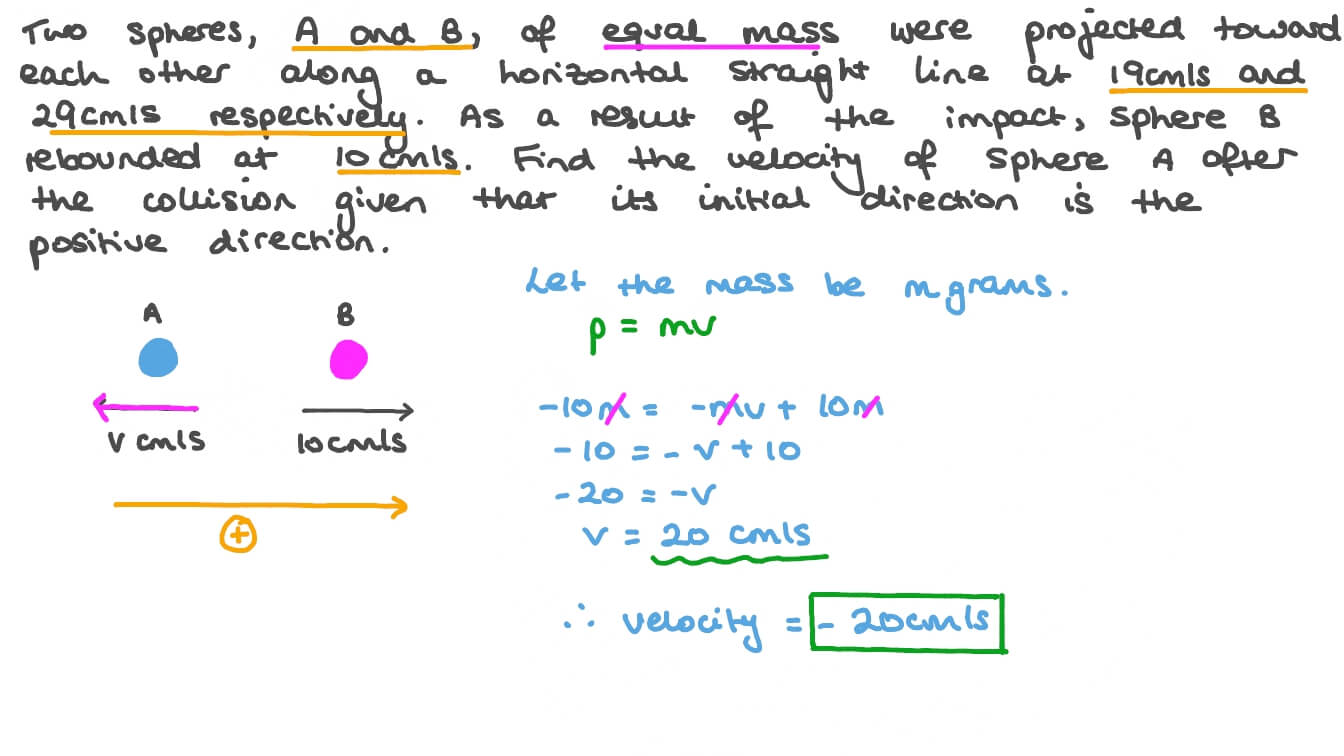 Two spheres, A and B, of equal mass were projected toward
each other along a horizontal straight line at 19cm/s and
29cm/s respectively. As a result of the impact, sphere B
rebounded at 10 cm/s. Find the velocity of sphere A after
the collision given that its initial direction is the
positive direction.
Let the mass be m grams.
p = mv
A B
v cm/s 10cm/s
+
-10m = -mv + 10m
-10 = -v + 10
-20 = -v
v = 20 cm/s
∴ velocity = -20cm/s